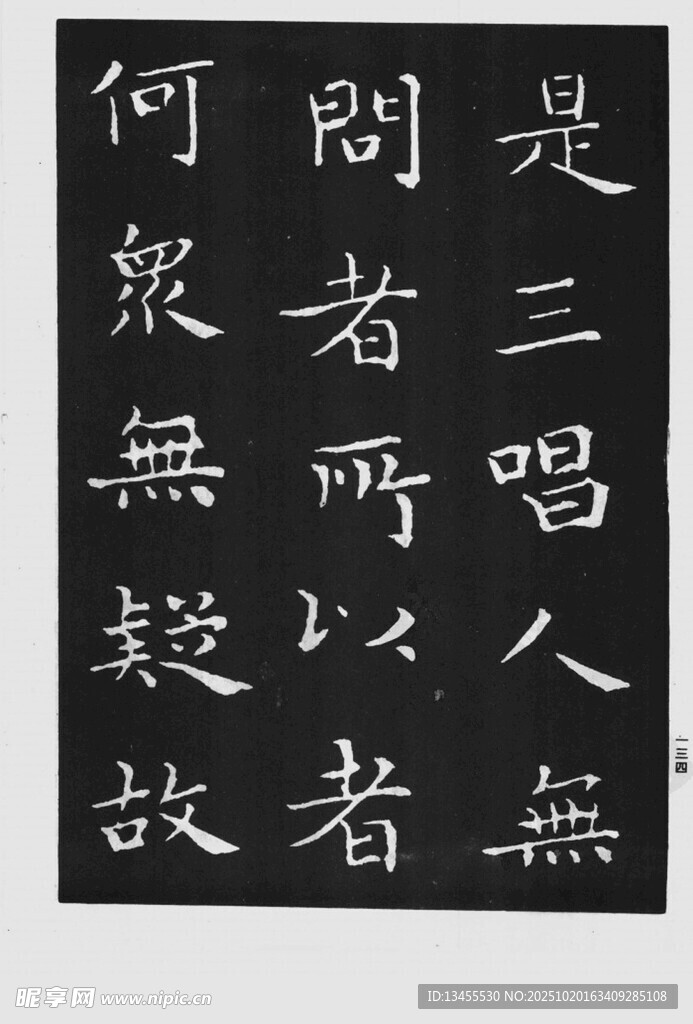 是三唱人無
問者所以者
何眾無疑故
一三四
昵享网 www.nipic.cn
ID:13455530 NO:20251020163409285108